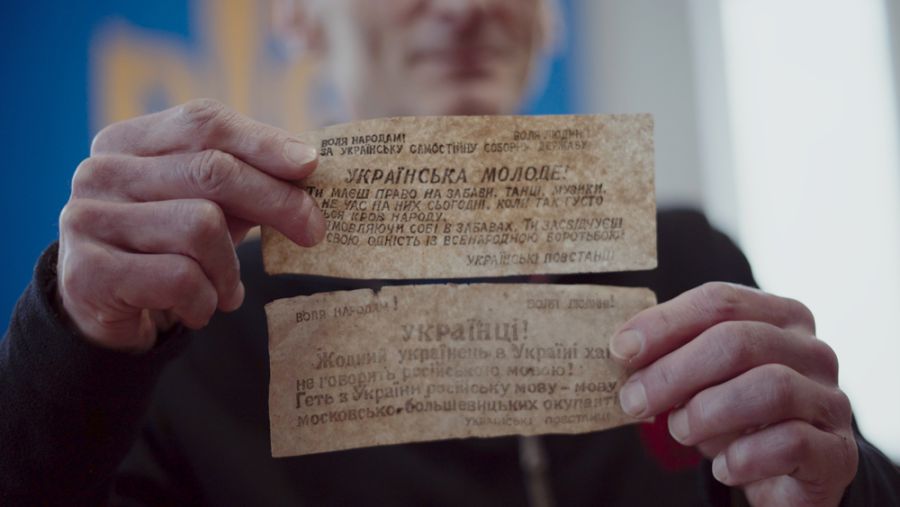 ВОЛЯ НАРОДАМ! ВОЛЯ ЛЮДИНІ!
ЗА УКРАЇНСЬКУ САМОСТІЙНУ СОБОРНУ ДЕРЖАВУ
УКРАЇНСЬКА МОЛОДЕ!
ТИ МАЄШ ПРАВО НА ЗАБАВИ, ТАНЦІ, МУЗИКИ.
НЕ ЧАС НА НИХ СЬОГОДНІ, КОЛИ ТАК ГУСТО
ЬСЯ КРОВ НАРОДУ.
МОВЛЯЮЧИ СОБІ В ЗАБАВАХ, ТИ ЗАСВІДЧУЄШ
СВОЮ ЄДНІСТЬ ІЗ ВСЕНАРОДНОЮ БОРОТЬБОЮ!
УКРАЇНСЬКІ ПОВСТАНЦІ
ВОЛЯ НАРОДАМ! ВОЛЯ ЛЮДИНІ!
УКРАЇНЦІ!
Жодний українець в Україні хай
не говорить російською мовою!
Геть з України російську мову – мову
московсько-большевицьких окупанті
УКРАЇНСЬКІ ПОВСТАНЦІ